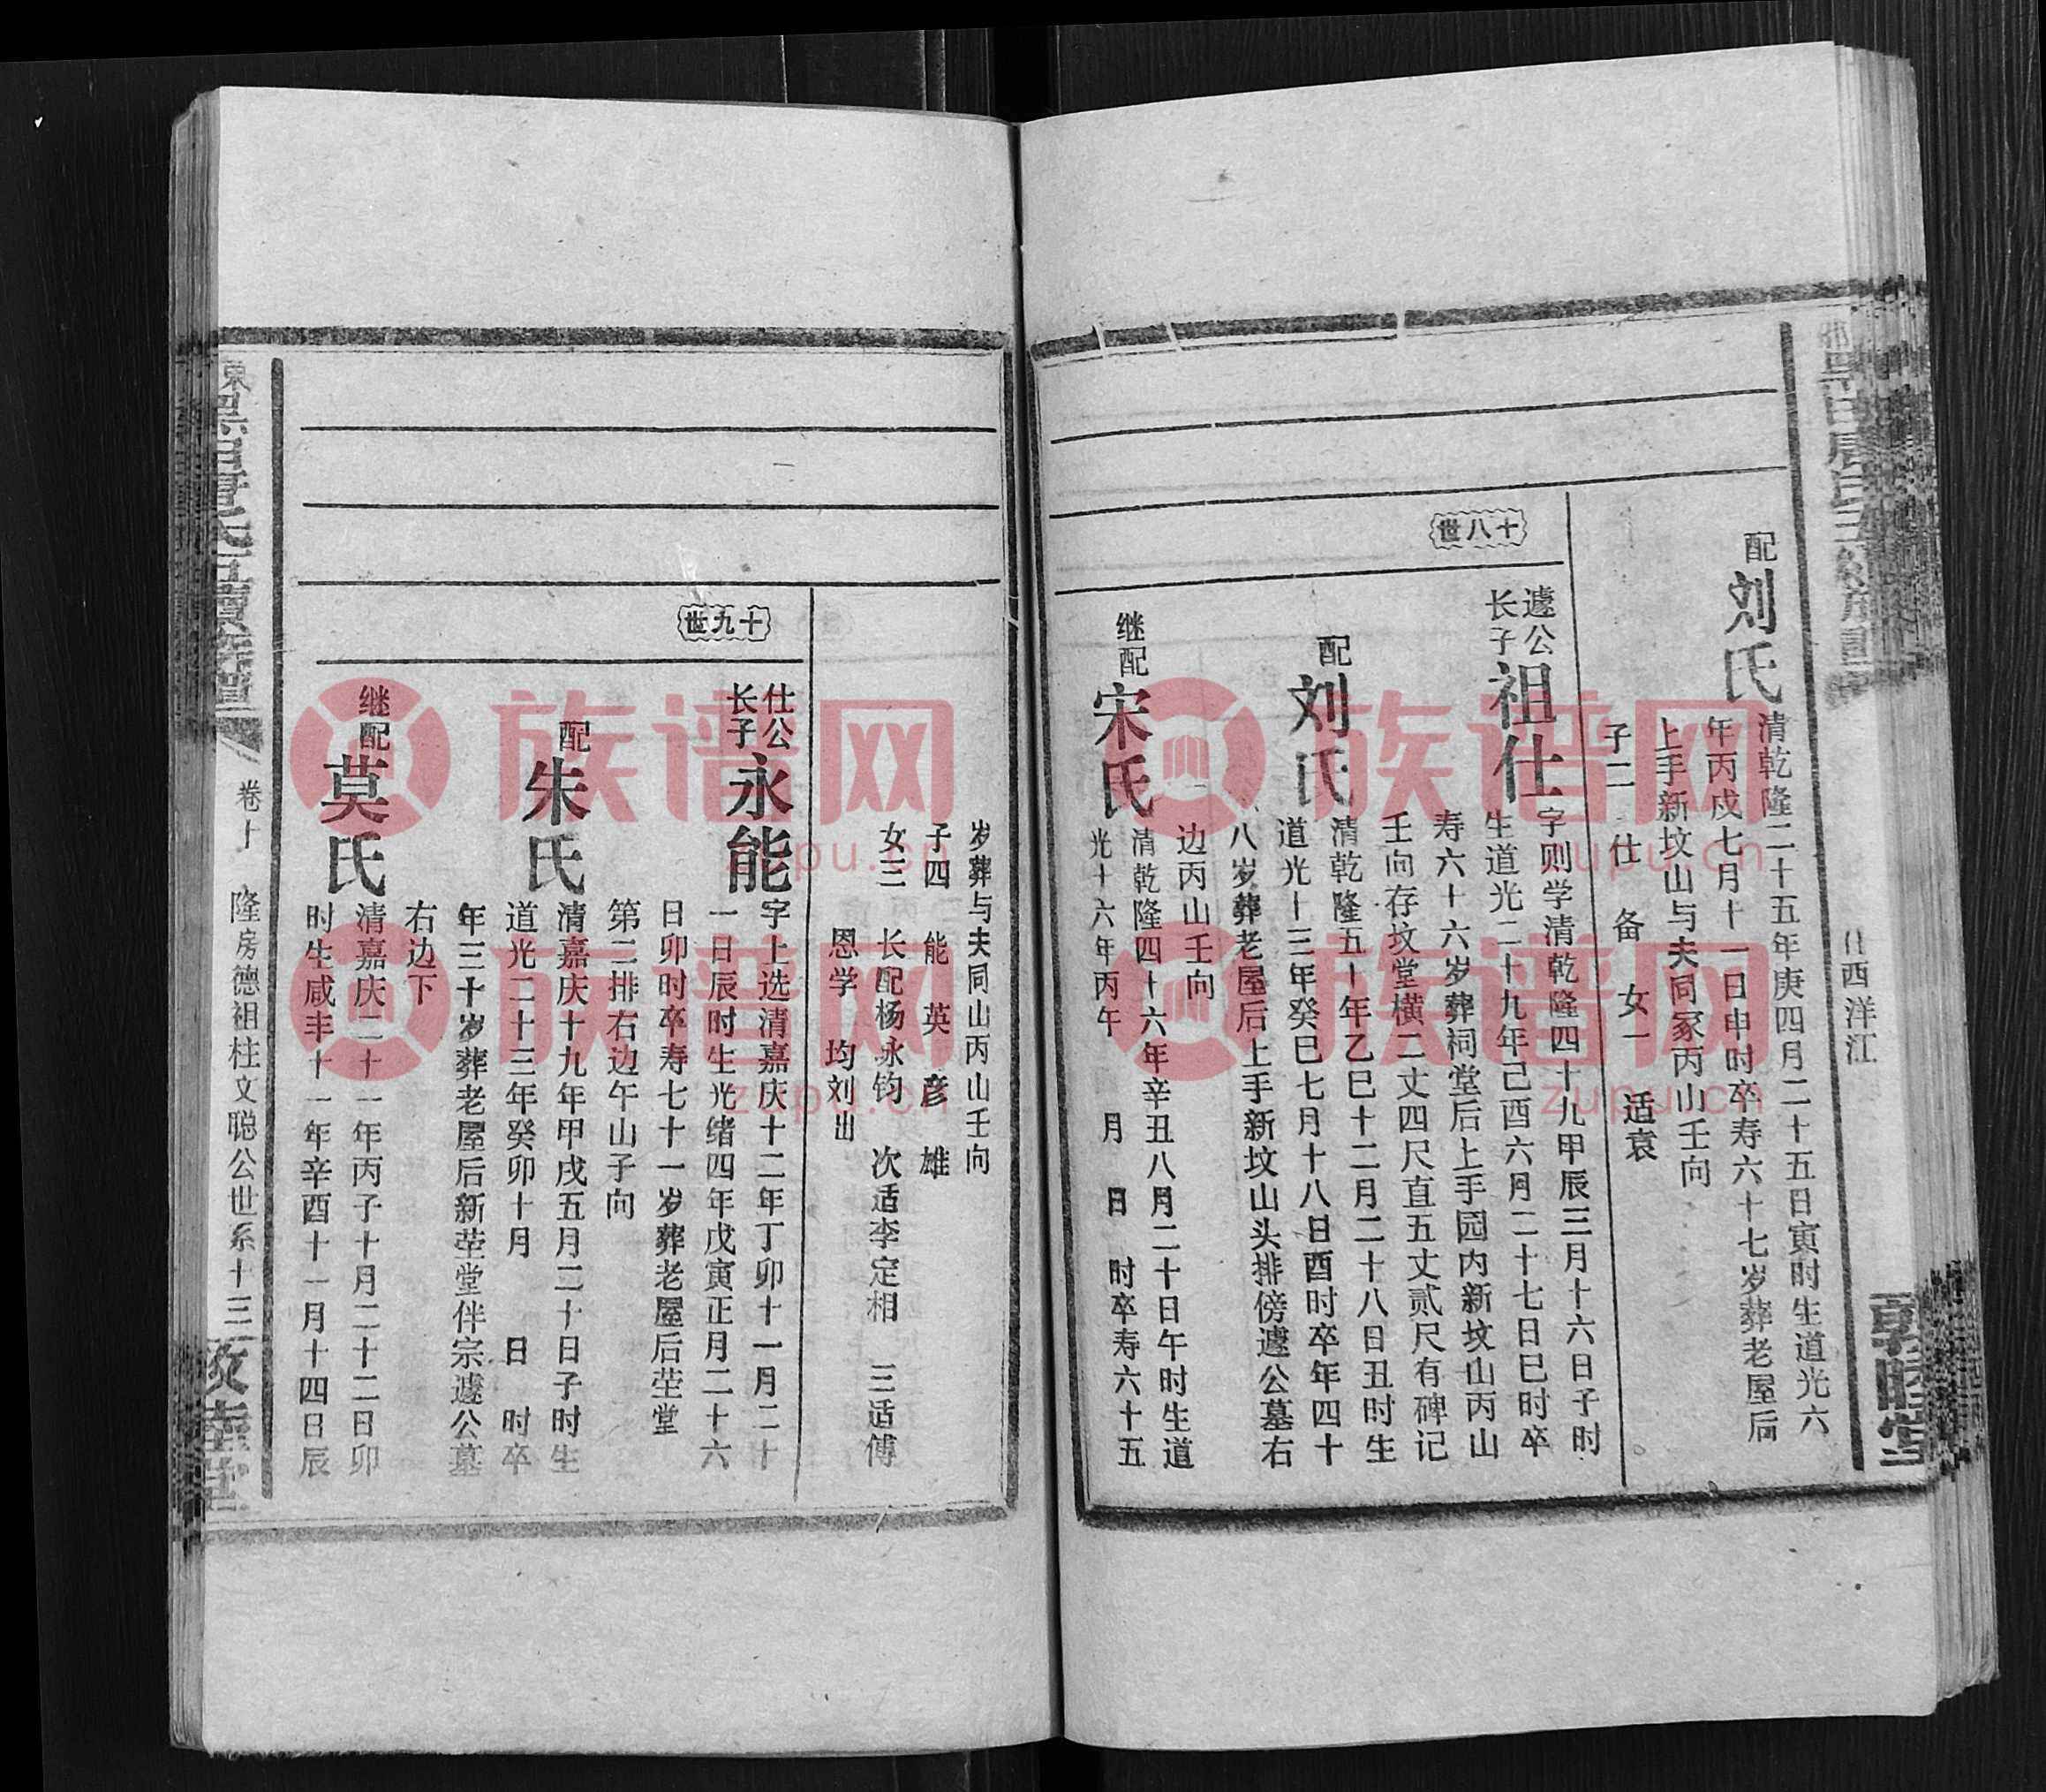 配
刘氏
清乾隆二十五年庚四月二十五日寅时生道光六
年丙戍七月十一日申时卒寿六十七岁葬老屋后
上手新坟山与夫同冢丙山壬向
子二 仕 备 女一 适袁
十八世
遽公
长子
祖仕
字则学清乾隆四十九甲辰三月十六日子时
生道光二十九年己酉六月二十七日巳时卒
寿六十六岁葬祠堂后上手园内新坟山丙山
壬向存坟堂横二丈四尺直五丈贰尺有碑记
配
刘氏
清乾隆五十年乙巳十二月二十八日丑时生
道光十三年癸巳七月十八日酉时卒年四十
八岁葬老屋后上手新坟山头排傍遽公墓右
边丙山壬向
继配
宋氏
清乾隆四十六年辛丑八月二十日午时生道
光十六年丙午 月 日 时卒寿六十五
岁葬与夫同山丙山壬向
子四 能 英 彦 雄
女三 长配杨永钧 次适李定相 三适傅
恩学 均刘出
十九世
仕公
长子
永能
字上选清嘉庆十二年丁卯十一月二十
一日辰时生光绪四年戊寅正月二十六
日卯时卒寿七十一岁葬老屋后茔堂
第二排右边午山子向
配
朱氏
清嘉庆十九年甲戍五月二十日子时生
道光二十三年癸卯十月 日 时卒
年三十岁葬老屋后新茔堂伴宗遽公墓
右边下
继配
莫氏
清嘉庆二十一年丙子十月二十二日卯
时生咸丰十一年辛酉十一月十四日辰
卷十 隆房德祖柱文聪公世系十三
族谱网
zupu.cn
族谱网
zupu.cn
族谱网
zupu.cn
族谱网
zupu.cn